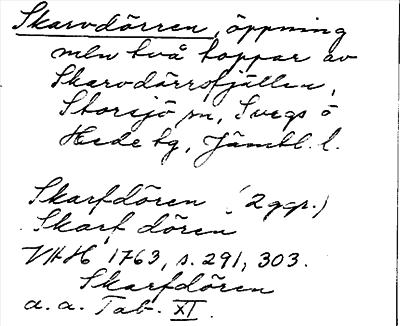 Skarvdörren, öppning
mln två toppar av
Skarvdörrsfjällen,
Storsjö sn, Svegs o
Hede tg, Jämtl. l.
Skarfdören (2 ggr.)
Skarf dören
VHH 1763, s. 291, 303.
Skarfdören
a. a. Tab. XI.